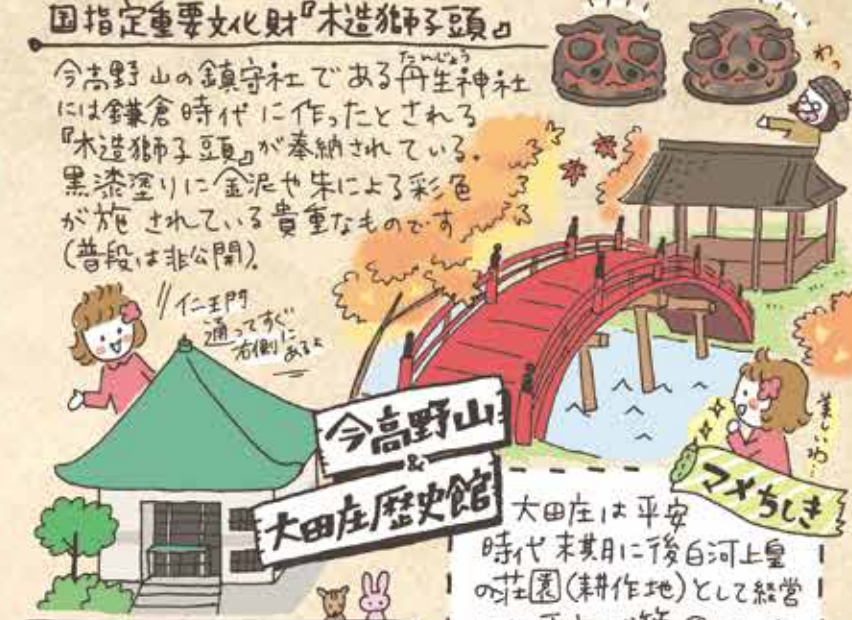 国指定重要文化財『木造獅子頭』
今高野山の鎮守社である丹生神社
たんじょう
には鎌倉時代に作ったとされる
『木造獅子頭』が奉納されている。
黒漆塗りに金泥や朱による彩色
が施されている貴重なものです
(普段は非公開)。
わっ
仁王門
通ってすぐ
右側に
あるよ
今高野山
&
大田庄歴史館
美しいわ…
マメちしき
大田庄は平安
時代末期に後白河上皇
の荘園(耕作地)として経営